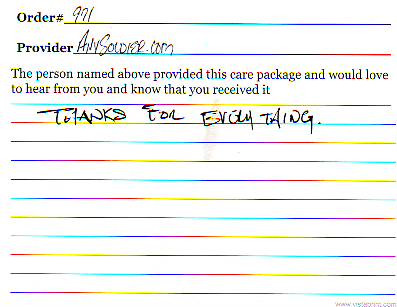 Order# 971
Provider AnySoldier.com
The person named above provided this care package and would love
to hear from you and know that you received it
THANKS FOR EVERY THING.
www.vistaprint.com